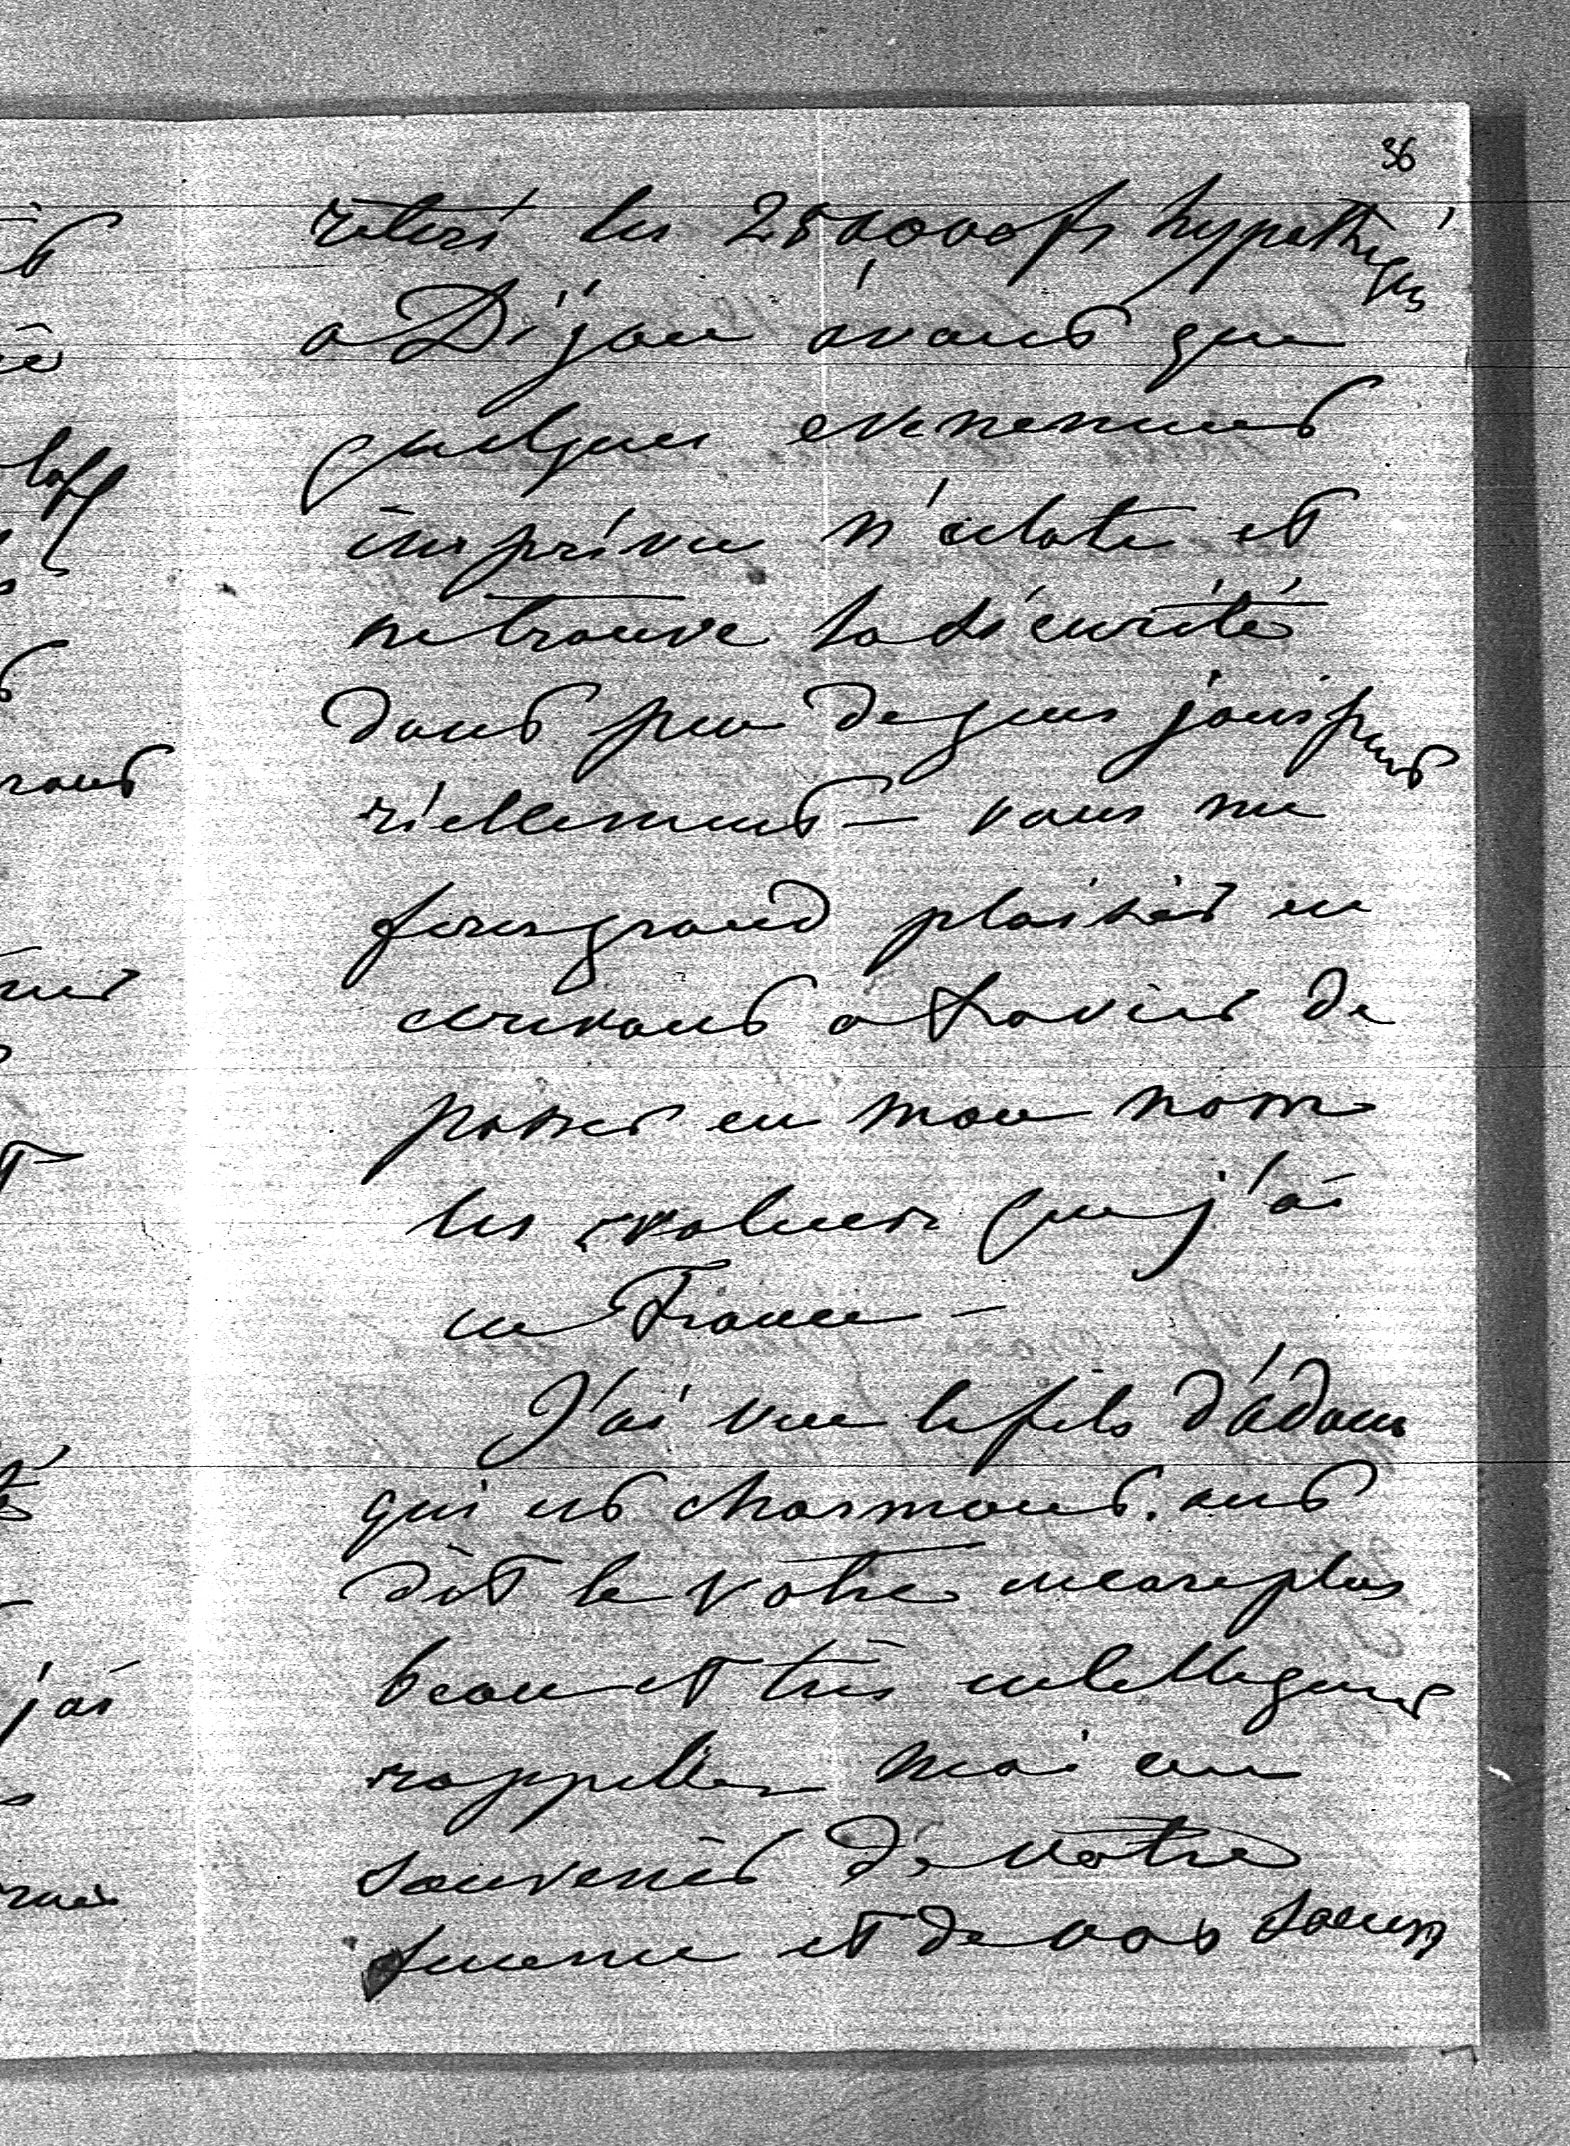 36
retiré les 250000 fs hypothéqués
a Dijon avant que
quelques evenement
imprévue n'eclate et
ne trouve la sécurité
dont peu de gens jouissent
réellement — vous me
ferez grand plaisir en
ecrivant a Xavier de
passer en mon nom
les valeurs que j'ai
en France —
J'ai vue le fils d'adam
qui est charmant. ont
dit le votre encore plus
beau et très intelligent
rappellez moi au
souvenir de votre
femme et de vos soeurs
j'ai